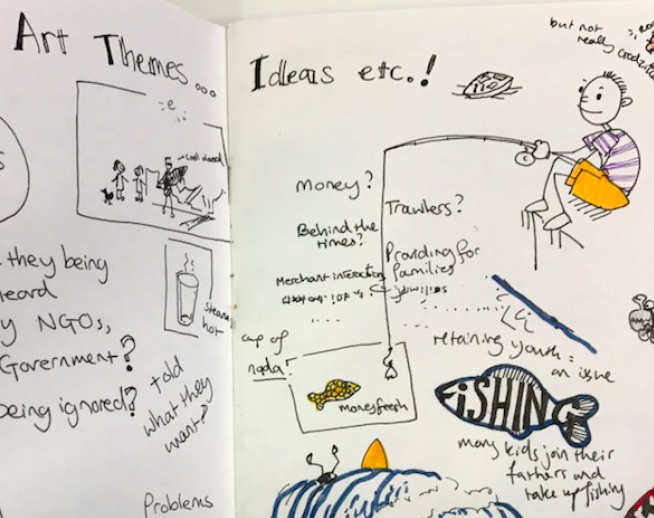 Art Themes...
they being
heard
y NGOs,
Government?
being ignored?
told
what they
want?
Problems
steaming
hot
Ideas etc.!
but not
really
Money?
Behind the
times?
Merchant interaction
Trawlers?
Providing for
families
cup of
moneyfeesh
retaining youth =
an issue
FiSHING
many kids join their
fathers and
take up fishing